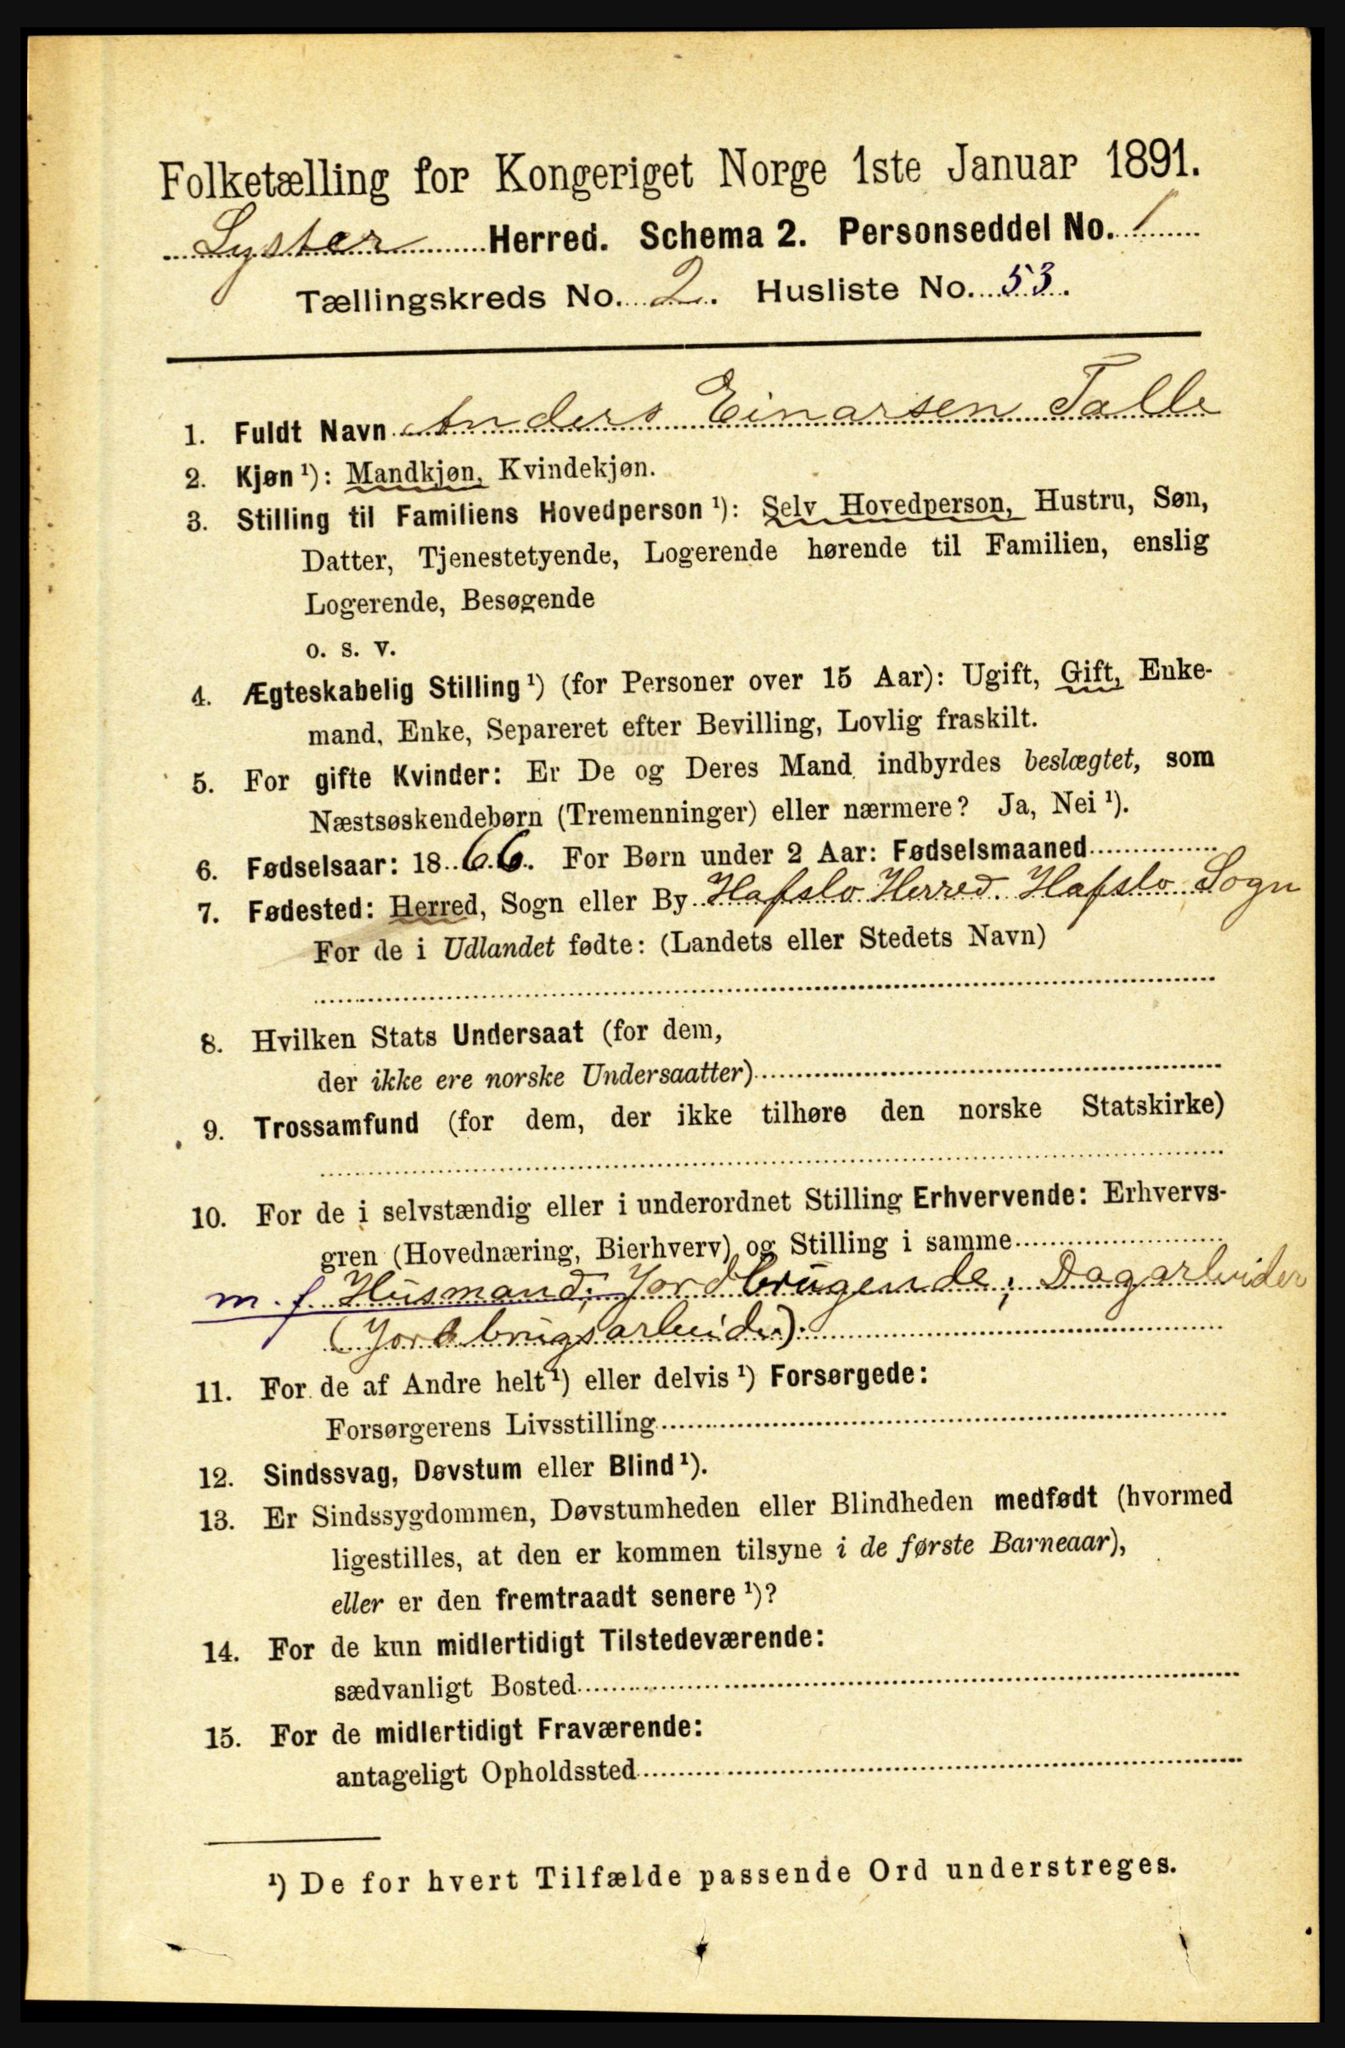 Folketælling for Kongeriget Norge 1ste Januar 1891.
Lyster Herred. Schema 2. Personseddel No. 1
Tællingskreds No. 2. Husliste No. 53.
1. Fuldt Navn Anders Einarsen Talle
2. Kjøn ¹): Mandkjøn, Kvindekjøn.
3. Stilling til Familiens Hovedperson ¹): Selv Hovedperson, Hustru, Søn,
Datter, Tjenestetyende, Logerende hørende til Familien, enslig
Logerende, Besøgende
o. s. v.
4. Ægteskabelig Stilling ¹) (for Personer over 15 Aar): Ugift, Gift, Enke-
mand, Enke, Separeret efter Bevilling, Lovlig fraskilt.
5. For gifte Kvinder: Er De og Deres Mand indbyrdes beslægtet, som
Næstsøskendebørn (Tremenninger) eller nærmere? Ja, Nei ¹).
6. Fødselsaar: 1866. For Børn under 2 Aar: Fødselsmaaned
7. Fødested: Herred, Sogn eller By Hafslo Herred. Hafslo Sogn
For de i Udlandet fødte: (Landets eller Stedets Navn)
8. Hvilken Stats Undersaat (for dem,
der ikke ere norske Undersaatter)
9. Trossamfund (for dem, der ikke tilhøre den norske Statskirke)
10. For de i selvstændig eller i underordnet Stilling Erhvervende: Erhvervs-
gren (Hovednæring, Bierhverv) og Stilling i samme
m. f. Husmand, Jordbrugende; Dagarbeider
(Jordbrugsarbeider).
11. For de af Andre helt ¹) eller delvis ¹) Forsørgede:
Forsørgerens Livsstilling
12. Sindssvag, Døvstum eller Blind ¹).
13. Er Sindssygdommen, Døvstumheden eller Blindheden medfødt (hvormed
ligestilles, at den er kommen tilsyne i de første Barneaar),
eller er den fremtraadt senere ¹)?
14. For de kun midlertidigt Tilstedeværende:
sædvanligt Bosted
15. For de midlertidigt Fraværende:
antageligt Opholdssted
¹) De for hvert Tilfælde passende Ord understreges.